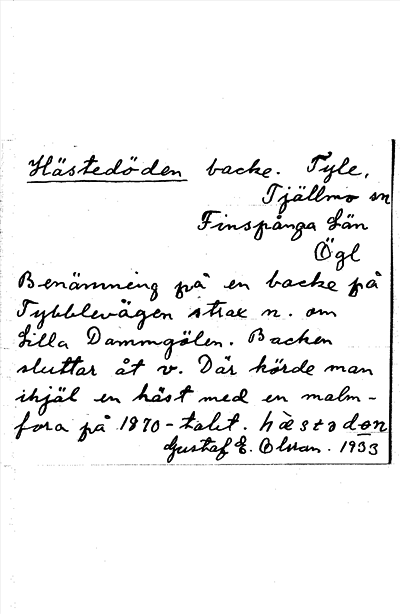 Hästedöden backe. Tyle,
Tjällmo sn
Finspånga Län
Ögl
Benämning på en backe på
Tybblevägen strax n. om
Lilla Dammgölen. Backen
sluttar åt v. Där körde man
ihjäl en häst med en malm-
fora på 1870-talet. hæstədən
Gustaf E. Olsson. 1933